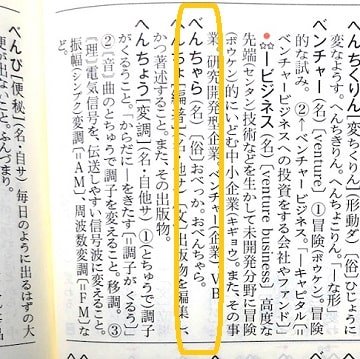 へんちくりん(名・形動ダ)〔俗〕ひじょうに
変なようす。へんちきりん。へんてこりん。「―な形」
ベンチャー〔名〕〔venture〕①冒険(ボウケン)。冒険
的な試み。②←ベンチャービジネス。「―キャピタル〔=
ベンチャービジネスへの投資をする会社やファンド〕」
―ビジネス〔名〕〔venture business〕高度な
先端(センタン)技術などを生かして未開発分野に冒険
(ボウケン)的にいどむ中小企業(キギョウ)。また、その事
業。研究開発型企業。ベンチャー(企業)。VB
べんちゃら〔名〕〔俗〕おべっか。おべんちゃら。
へんちょ[編著]〔名・他サ〕〔文〕出版物を編集し、
かつ著述すること。また、その出版物。
へんちょう[変調]〔名・自他サ〕①(とちゅうで)調子
がくるうこと。「からだに―をきたす〔=調子がくるう〕」
②〔音〕曲のとちゅうで調子を変えること。移調。③
〔理〕電気信号を、伝送しやすい信号波に変えること。
振幅(シンプク)変調〔=AM〕、周波数変調〔=FM〕な
ど。
べんぴ[便秘]〔名・自サ〕毎日のように出るはずの大
便が出ないこと。ふんづまり。